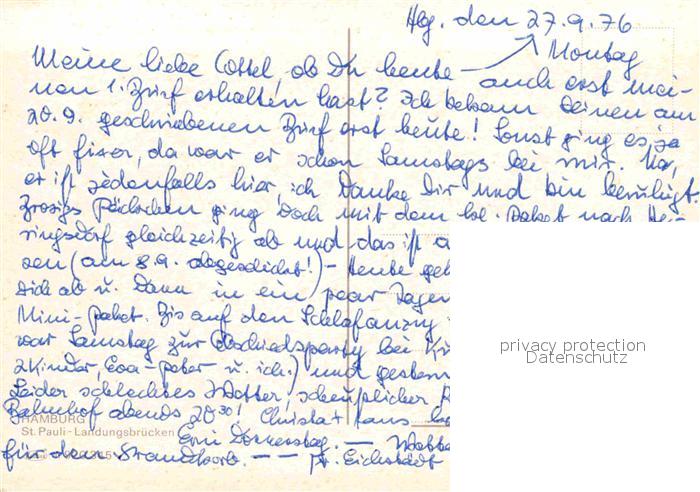 Hbg. den 27.9.76
Montag
Meine liebe Cottel, ob Du heute – auch erst mei-
nen 1. Brief erhalten hast? Ich bekam Deinen am
20.9. geschriebenen Brief erst heute! Sonst ging es ja
oft fixer, da war er schon Samstags bei mir. Na,
er ist jedenfalls hier, ich danke Dir und bin beruhigt.
Päckchen ging doch mit dem Paket nach He-
ringsdorf gleichzeitig ab und das ist
sen (am 8.9. abgeschickt!) – Heute
Dich ab u. dann in ein paar Tagen
Mini-Paket. Bis auf den Schlafanzug
war Samstag zur Abschiedsparty bei
2 Kinder, Eva-Peter u. ich.) und gestern
Leider schlechtes Wetter, scheusslicher
Bahnhof abends 20³⁰! Christa + Hans
HAMBURG
St. Pauli - Landungsbrücken
Donnerstag. —
für den Strandkorb. — — Eichstädt
privacy protection
Datenschutz